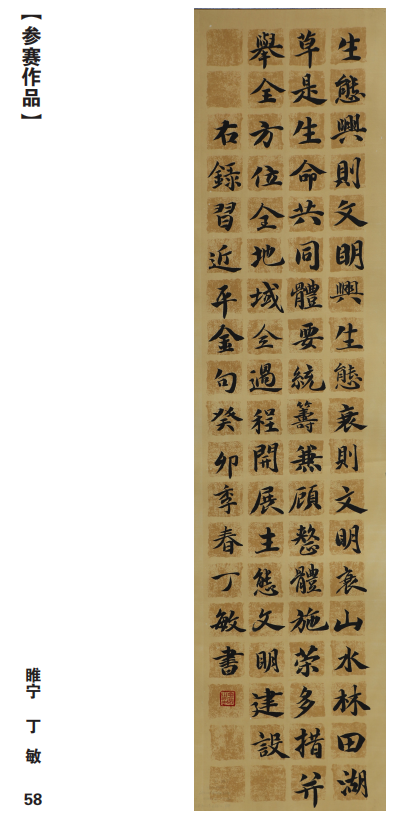 【参赛作品】
生態興則文明興生態衰則文明衰山水林田湖
草是生命共同體要統籌兼顧整體施策多措并
舉全方位全地域全過程開展生態文明建設
右錄習近平金句癸卯季春丁敏書
睢宁 丁 敏
58